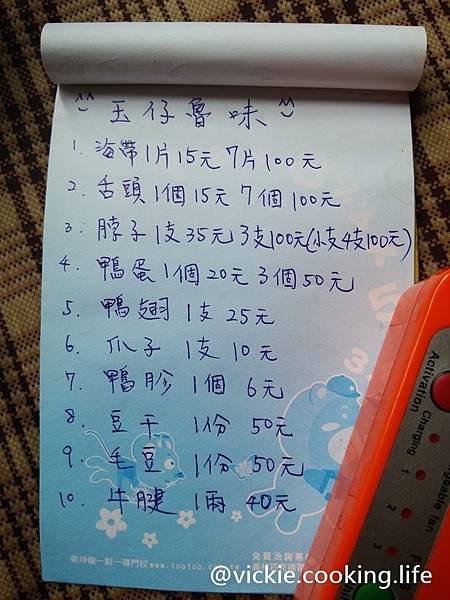 ^^ 玉仔魯味 ^^
1. 海帶1片15元 7片100元
2. 舌頭1個15元 7個100元
3. 脖子1支35元 3支100元(小支4支100元)
4. 鴨蛋1個20元 3個50元
5. 鴨翅 1支 25元
6. 爪子 1支 10元
7. 鴨胗 1個 6元
8. 豆干 1份 50元
9. 毛豆 1份 50元
10. 牛腱 1兩 40元
免費洽詢專
一對一專門校 www.toptop.co
Activation
Charging
1
2
3
geable fan
@vickie.cooking.life